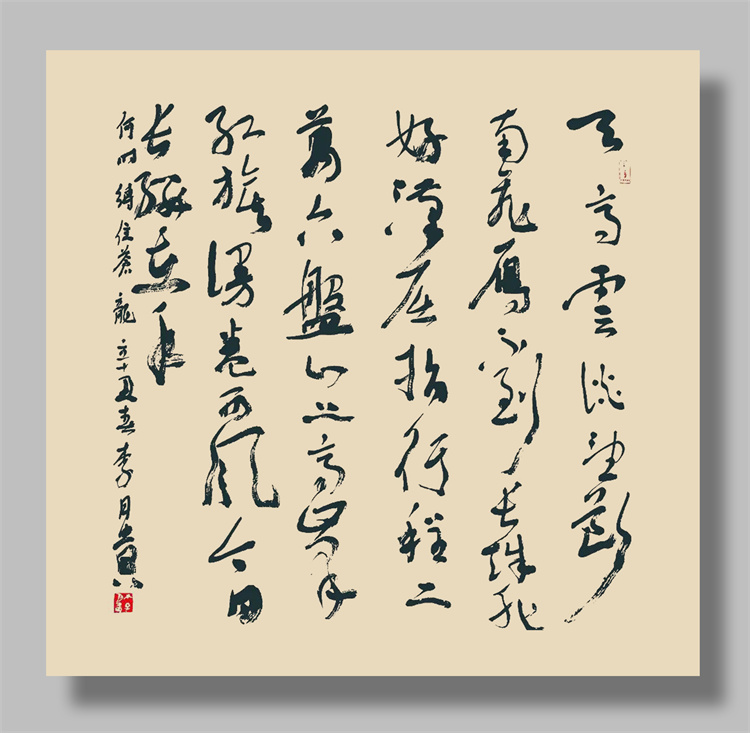 天高雲淡望斷
南飛雁不到長城非
好漢屈指行程二
萬六盤山上高峯
紅旗漫卷西風今日
長纓在手
何时縛住蒼龍 辛丑春李月